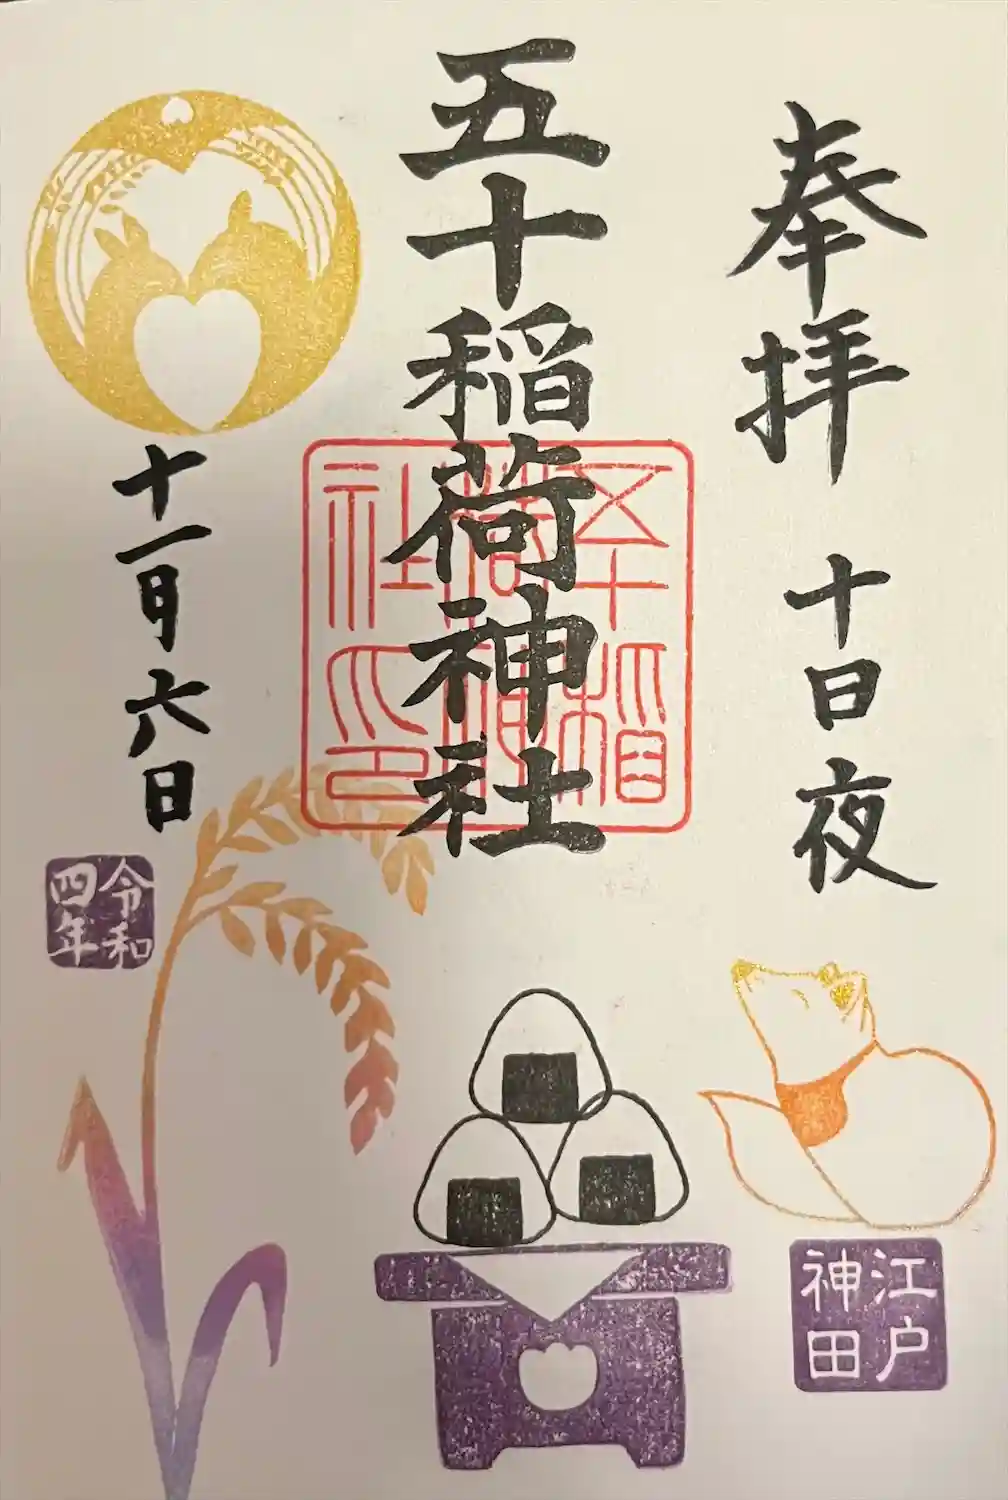 奉拝
十日夜
江戸
神田
五十稲荷神社
五十稲
荷神
社印
十一月六日
令和
四年